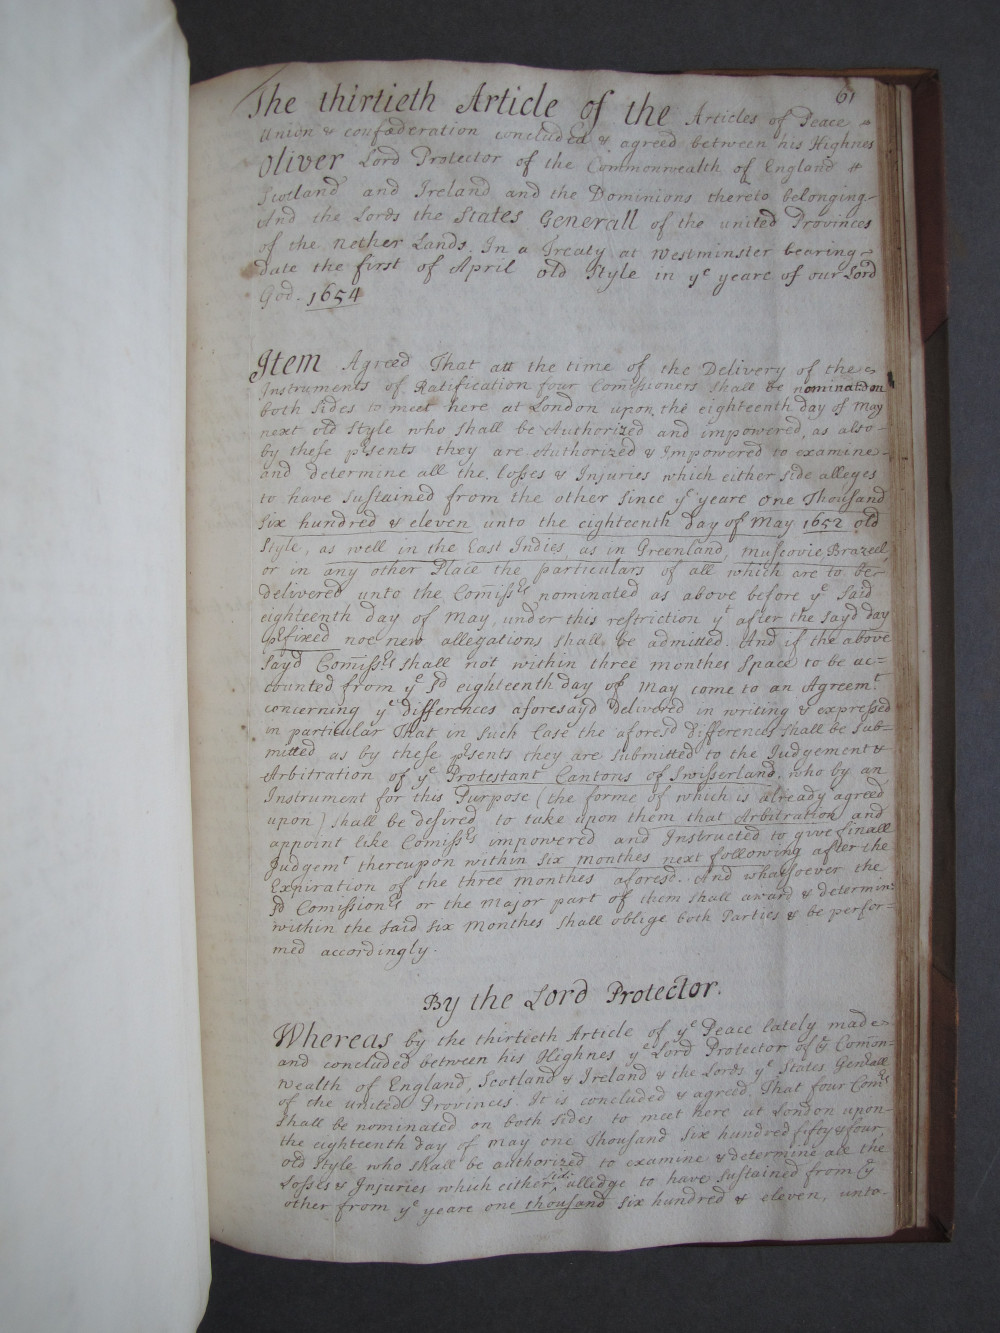 61
The thirtieth Article of the Articles of Peace
Union & confæderation concluded & agreed between his Highnes
Oliver Lord Protector of the Commonwealth of England &
Scotland and Ireland and the Dominions thereto belonging
And the Lords the States Generall of the united Provinces
of the nether Lands. In a Treaty at Westminster bearing
date the first of April old Style in yᵉ yeare of our Lord
God. 1654
Item Agreed That att the time of the Delivery of the
Instruments of Ratification four Comissioners shall be nominated on
both sides to meet here at London upon the eighteenth day of May
next old style who shall be Authorized and impowered, as also
by these pſents they are Authorized & Impowered to examine
and determine all the losses & Injuries which either side alleges
to have sustained from the other since yᵉ yeare one Thousand
six hundred & eleven unto the eighteenth day of May 1652 old
style, as well in the East Indies, as in Greenland, Muscovie Brazeel,
or in any other Place the particulars of all which are to be
delivered unto the Com̃issʳˢ nominated as above before yᵉ said
eighteenth day of May, under this restriction yᵗ after the sayd day
pfixed noe new allegations shall be admitted. And if the above
sayd Com̃issʳˢ shall not within three monthes space to be ac=
counted from yᵉ sd eighteenth day of May come to an Agreemᵗ
concerning yᵉ differences aforesayd delivered in writing & expressed
in particular That in such Case the aforesd differences shall be sub=
mitted as by these pſents they are submitted to the Judgement &
Arbitration of yᵉ Protestant Cantons of Swisserland, who by an
Instrument for this Purpose (the forme of which is already agreed
upon) shall be desired to take upon them that Arbitration and
appoint like Comissʳˢ impowered and Instructed to give finall
Judgemᵗ thereupon within six monthes next following after the
Expiration of the three monthes aforesd. And whatsoever the
sd Comissionʳˢ or the major part of them shall award & determin:
within the said six Monthes shall oblige both Parties & be perfor=
med accordingly.
By the Lord Protector.
Whereas by the thirtieth Article of yᵉ Peace lately made
and concluded between his Highnes yᵉ Lord Protector of yᵉ Com̃on=
wealth of England, Scotland & Ireland & the Lords yᵉ States Genʳall
of the united Provinces. It is concluded & agreed That four Comʳˢ
shall be nominated on both sides to meet here at London upon
the eighteenth day of May one thousand six hundred fifty & four
old style who shall be authorized to examine & determine all the
Losses & Injuries which either side alledge to have sustained from yᵉ
other from yᵉ yeare one thousand six hundred & eleven, unto